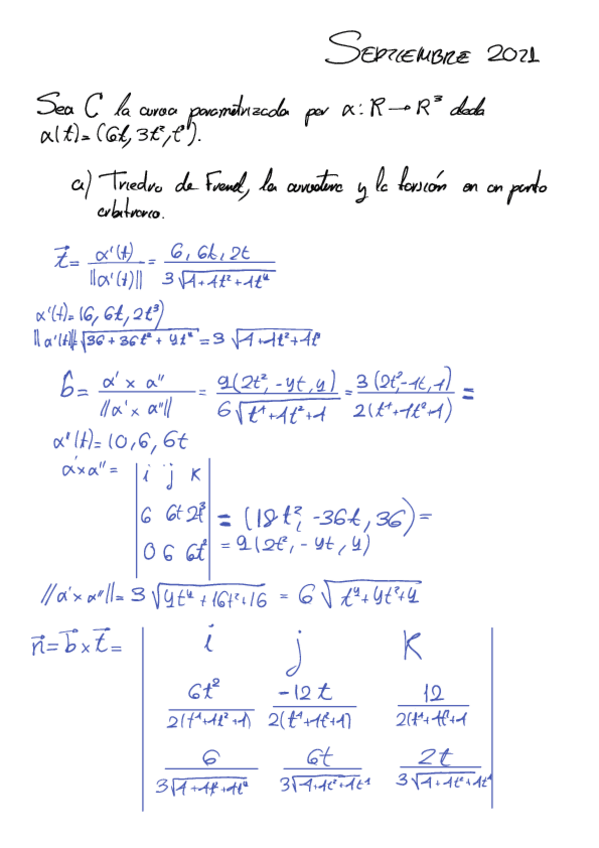 SEPTIEMBRE 2021
Sea C la curva parametrizada por α: R → R³ dada
α(t) = (6t, 3t², t³).
a) Triedro de Frenet, la curvatura y la torsión en un punto
arbitrario.
t⃗ = α'(t) / ||α'(t)|| = 6, 6t, 2t / 3√1+1t²+1t⁴
α'(t) = (6, 6t, 2t³)
||α'(t)|| √36 + 36t² + 4t⁴ = 3
b = α' × α'' / ||α' × α''|| = 9(2t², -4t, 4) / 6√t⁴+1t²+1 = 3(2t²-1t,1) / 2(t⁴+1t²+1) =
α''(t) = (0, 6, 6t
α'×α'' = | i j k
6 6t 2t³ = (18t², -36t, 36) =
0 6 6t² = 9(2t², -4t, 4)
||α' × α''|| = 3√4t⁴ + 16t² + 16 = 6√t⁴+4t²+4
n⃗ = b⃗ × t⃗ = i j k
6t² / 2(t⁴+1t²+1) -12t / 2(t⁴+1t²+1) 12 / 2(t⁴+1t²+1
6 / 3√1+1t²+1t⁴ 6t / 3√1+1t²+1t⁴ 2t / 3√1+1t²+1t⁴